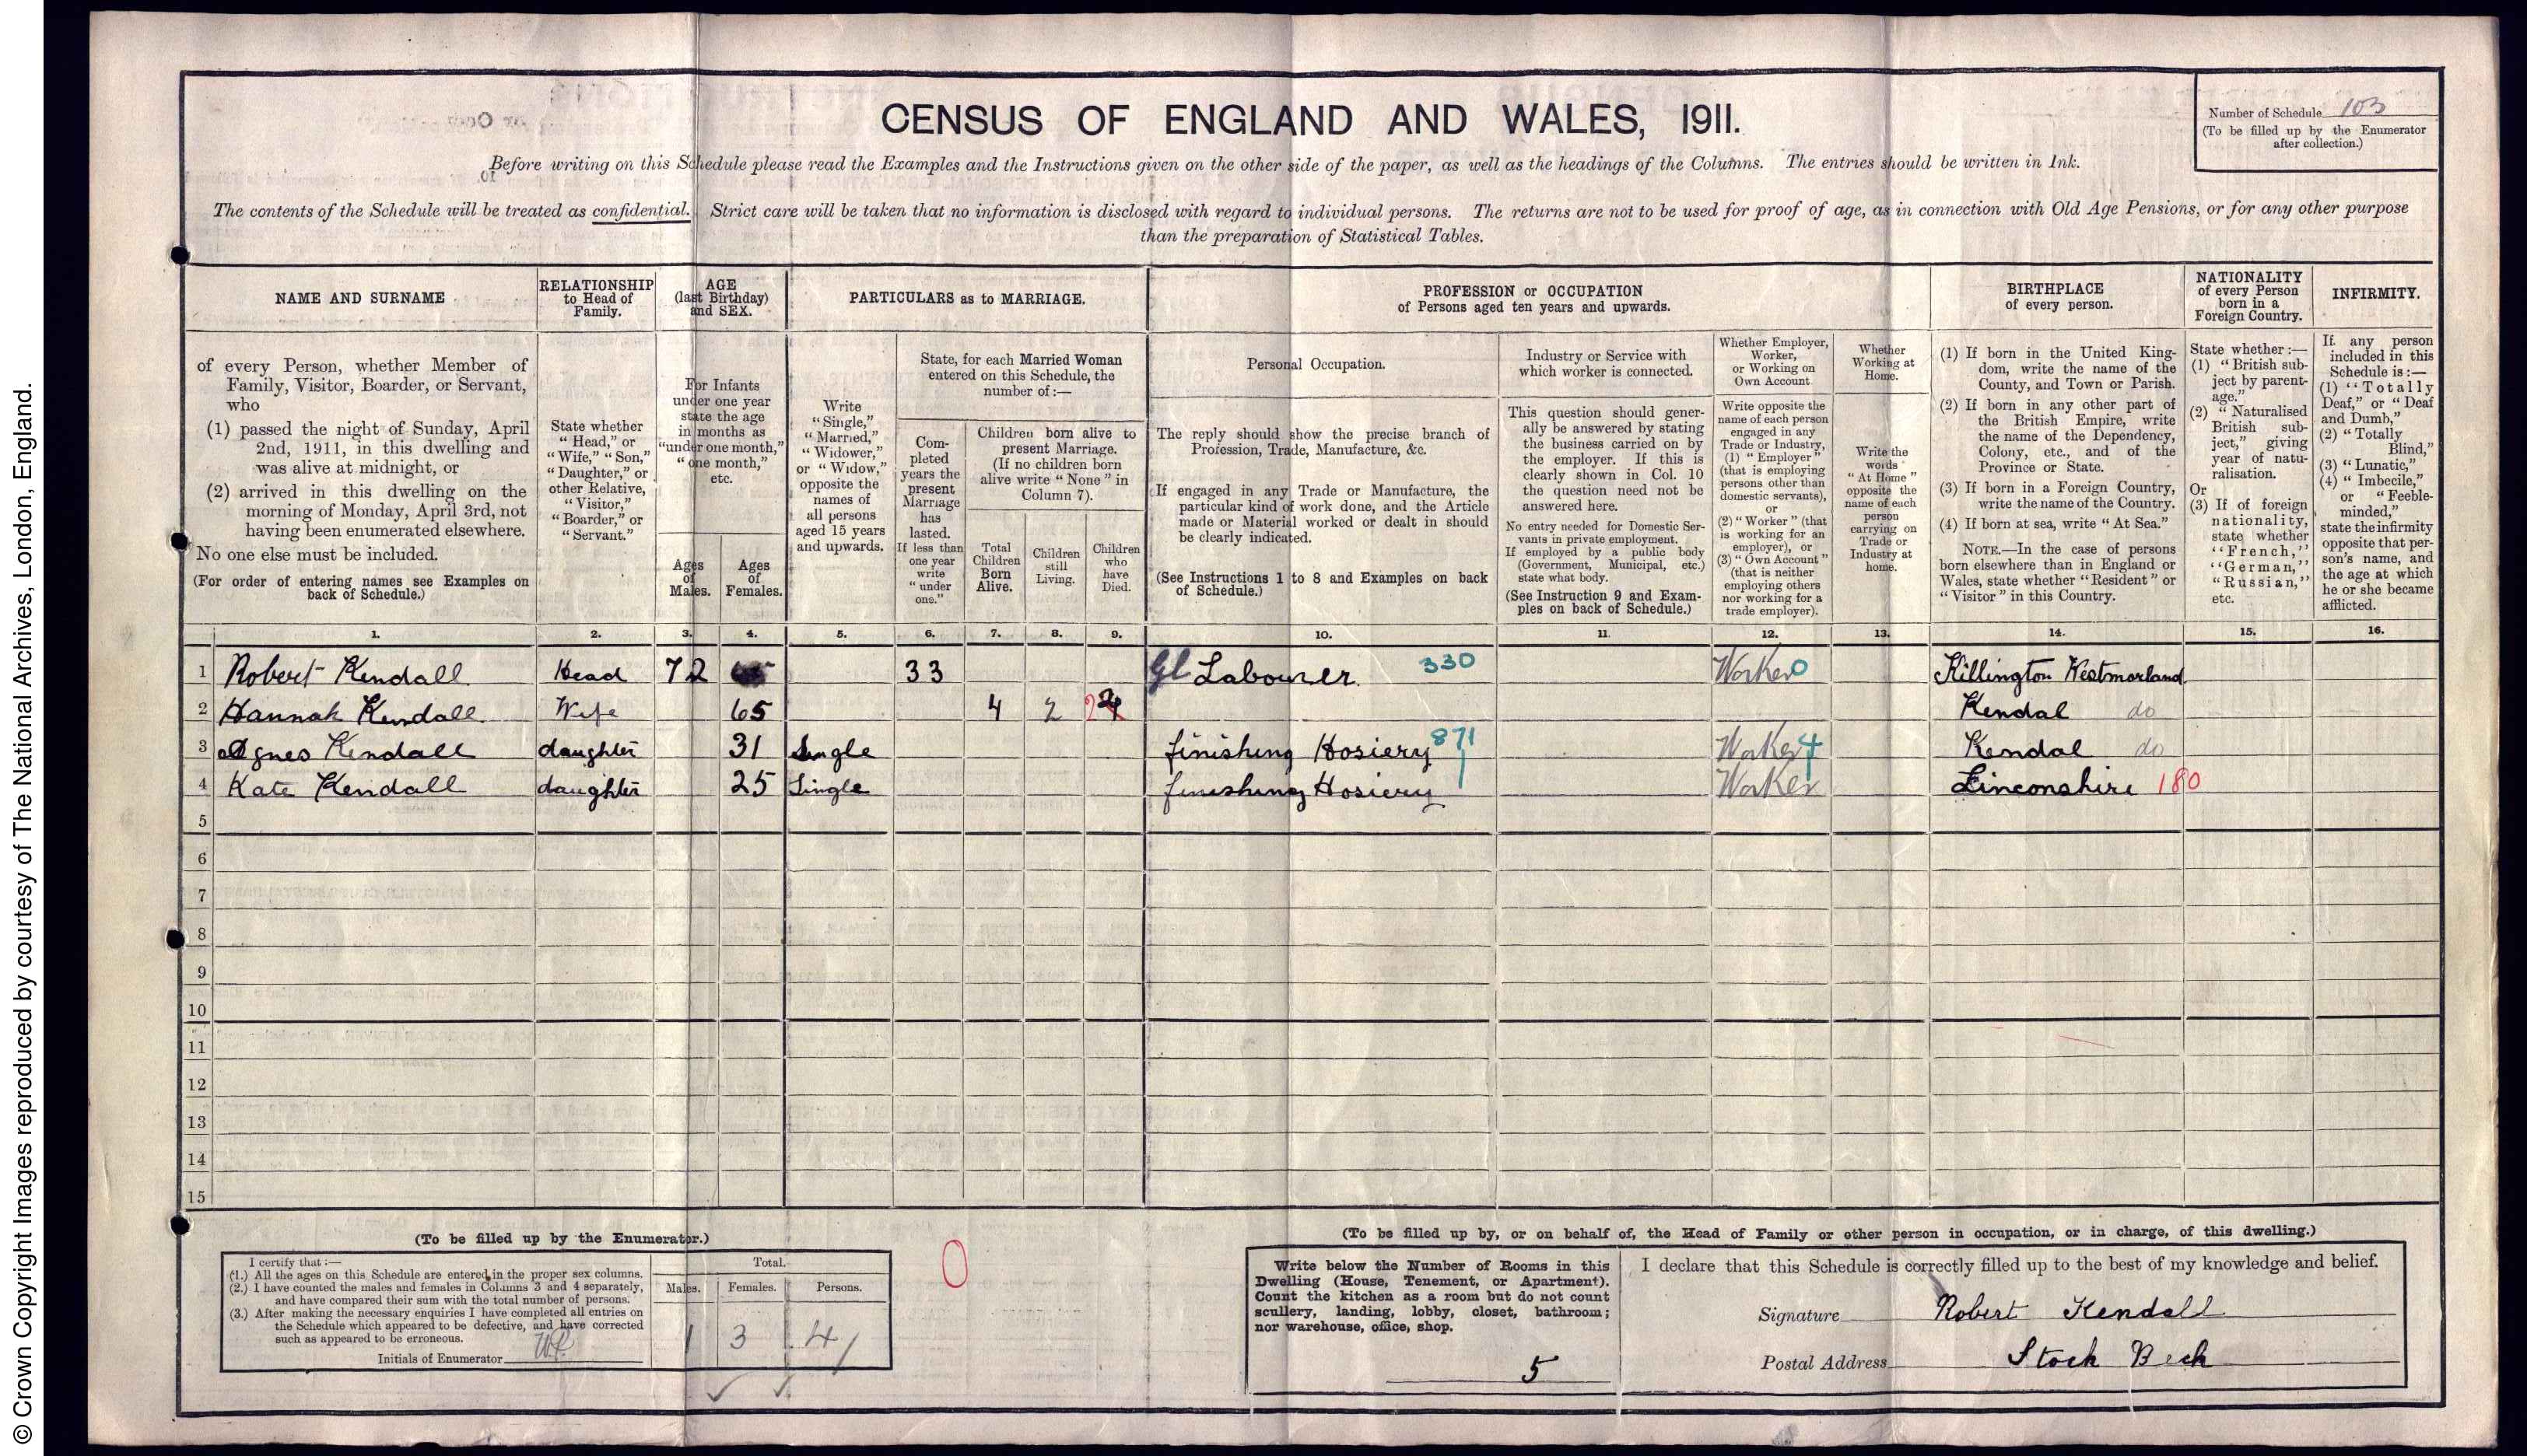 © Crown Copyright Images reproduced by courtesy of The National Archives, London, England.
CENSUS OF ENGLAND AND WALES, 1911.
Number of Schedule 103
(To be filled up by the Enumerator after collection.)
Before writing on this Schedule please read the Examples and the Instructions given on the other side of the paper, as well as the headings of the Columns. The entries should be written in Ink.
The contents of the Schedule will be treated as confidential. Strict care will be taken that no information is disclosed with regard to individual persons. The returns are not to be used for proof of age, as in connection with Old Age Pensions, or for any other purpose
than the preparation of Statistical Tables.
NAME AND SURNAME
of every Person, whether Member of
Family, Visitor, Boarder, or Servant,
who
(1) passed the night of Sunday, April
2nd, 1911, in this dwelling and
was alive at midnight, or
(2) arrived in this dwelling on the
morning of Monday, April 3rd, not
having been enumerated elsewhere.
No one else must be included.
(For order of entering names see Examples on
back of Schedule.)
RELATIONSHIP
to Head of
Family.
State whether
"Head," or
"Wife," "Son,"
"Daughter," or
other Relative,
"Visitor,"
"Boarder," or
"Servant."
AGE
(last Birthday)
and SEX.
For Infants
under one year
state the age
in months as
"under one month,"
"one month,"
etc.
Ages
of
Males.
Ages
of
Females.
PARTICULARS as to MARRIAGE.
Write
"Single,"
"Married,"
"Widower,"
or "Widow,"
opposite the
names of
all persons
aged 15 years
and upwards.
State, for each Married Woman
entered on this Schedule, the
number of :—
Com-
pleted
years the
present
Marriage
has
lasted.
If less than
one year
write
"under
one."
Children born alive to
present Marriage.
(If no children born
alive write "None" in
Column 7).
Total
Children
Born
Alive.
Children
still
Living.
Children
who
have
Died.
PROFESSION or OCCUPATION
of Persons aged ten years and upwards.
Personal Occupation.
The reply should show the precise branch of
Profession, Trade, Manufacture, &c.
If engaged in any Trade or Manufacture, the
particular kind of work done, and the Article
made or Material worked or dealt in should
be clearly indicated.
(See Instructions 1 to 8 and Examples on back
of Schedule.)
Industry or Service with
which worker is connected.
This question should gener-
ally be answered by stating
the business carried on by
the employer. If this is
clearly shown in Col. 10
the question need not be
answered here.
No entry needed for Domestic Ser-
vants in private employment.
If employed by a public body
(Government, Municipal, etc.)
state what body.
(See Instruction 9 and Exam-
ples on back of Schedule.)
Whether Employer,
Worker,
or Working on
Own Account
Write opposite the
name of each person
engaged in any
Trade or Industry,
(1) "Employer"
(that is employing
persons other than
domestic servants),
or
(2) "Worker" (that
is working for an
employer), or
(3) "Own Account"
(that is neither
employing others
nor working for a
trade employer).
Whether
Working at
Home.
Write the
words
"At Home"
opposite the
name of each
person
carrying on
Trade or
Industry at
home.
BIRTHPLACE
of every person.
(1) If born in the United King-
dom, write the name of the
County, and Town or Parish.
(2) If born in any other part of
the British Empire, write
the name of the Dependency,
Colony, etc., and of the
Province or State.
(3) If born in a Foreign Country,
write the name of the Country.
(4) If born at sea, write "At Sea."
NOTE.—In the case of persons
born elsewhere than in England or
Wales, state whether "Resident" or
"Visitor" in this Country.
NATIONALITY
of every Person
born in a
Foreign Country.
State whether :—
(1) "British sub-
ject by parent-
age."
(2) "Naturalised
British sub-
ject," giving
year of natu-
ralisation.
Or
(3) If of foreign
nationality,
state whether
"French,"
"German,"
"Russian,"
etc.
INFIRMITY.
If any person
included in this
Schedule is :—
(1) "Totally
Deaf," or "Deaf
and Dumb,"
(2) "Totally
Blind,"
(3) "Lunatic,"
(4) "Imbecile,"
or "Feeble-
minded,"
state the infirmity
opposite that per-
son's name, and
the age at which
he or she became
afflicted.
1. 2. 3. 4. 5. 6. 7. 8. 9. 10. 11. 12. 13. 14. 15. 16.
1 Robert Kendall Head 72 33 Gl Labourer 330 Worker 0 Killington Westmorland
2 Hannah Kendall Wife 65 4 2 2 Kendal do
3 Agnes Kendall daughter 31 Single finishing Hosiery 871 Worker 4 Kendal do
4 Kate Kendall daughter 25 Single finishing Hosiery Worker Linconshire 180
5
6
7
8
9
10
11
12
13
14
15
(To be filled up by the Enumerator.)
I certify that :—
(1.) All the ages on this Schedule are entered in the proper sex columns.
(2.) I have counted the males and females in Columns 3 and 4 separately,
and have compared their sum with the total number of persons.
(3.) After making the necessary enquiries I have completed all entries on
the Schedule which appeared to be defective, and have corrected
such as appeared to be erroneous.
Initials of Enumerator
Total.
Males. Females. Persons.
1 3 4
0
(To be filled up by, or on behalf of, the Head of Family or other person in occupation, or in charge, of this dwelling.)
Write below the Number of Rooms in this
Dwelling (House, Tenement, or Apartment).
Count the kitchen as a room but do not count
scullery, landing, lobby, closet, bathroom;
nor warehouse, office, shop.
5
I declare that this Schedule is correctly filled up to the best of my knowledge and belief.
Signature Robert Kendall
Postal Address Stock Beck